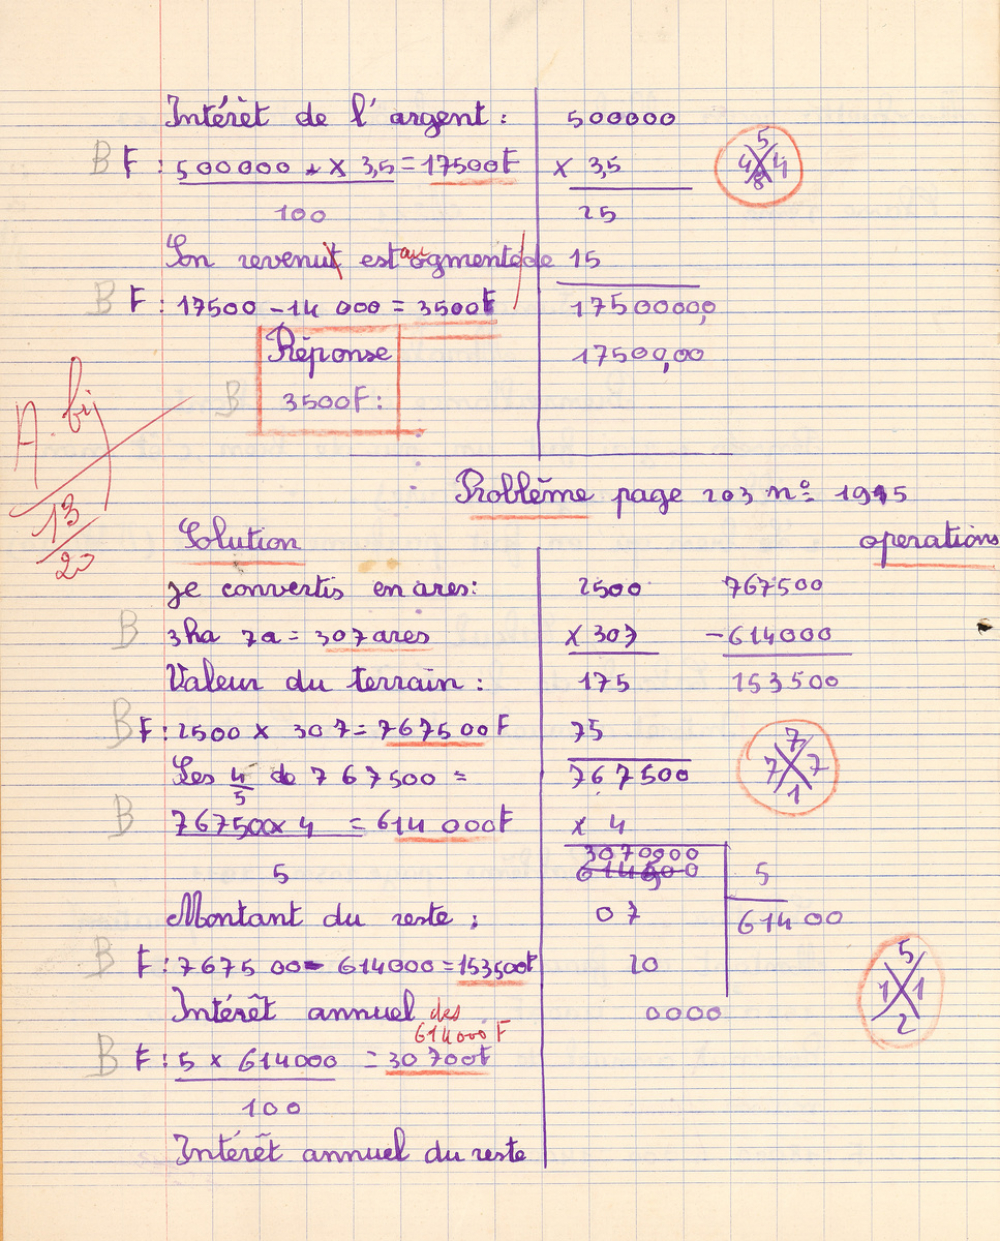 Intérêt de l'argent : 500000
B F : 500000 × 3,5 = 17500F × 3,5
5 4 4 8
100 25
Son revenu est augmenté de 15
B F : 17500 - 14 000 = 3500F 1750000,0
Réponse 17500,00
B 3500F :
A. bi
13
20
Problème page 203 nº 1945
Solution operations
je convertis en ares : 2500 767500
B 3ha 7a = 307 ares × 307 - 614000
Valeur du terrain : 175 153500
B F : 2500 × 307 = 767500F 75
7 7 7 1
Les 4/5 de 767500 = 767500
B 767500 × 4 = 614 000F × 4
3070000
5 614000 5
Montant du reste : 07 61400
B F : 767500 - 614000 = 153500F 20
5 1 1 2
Intérêt annuel des 0000
614000 F
B F : 5 × 614000 = 30700F
100
Intérêt annuel du reste